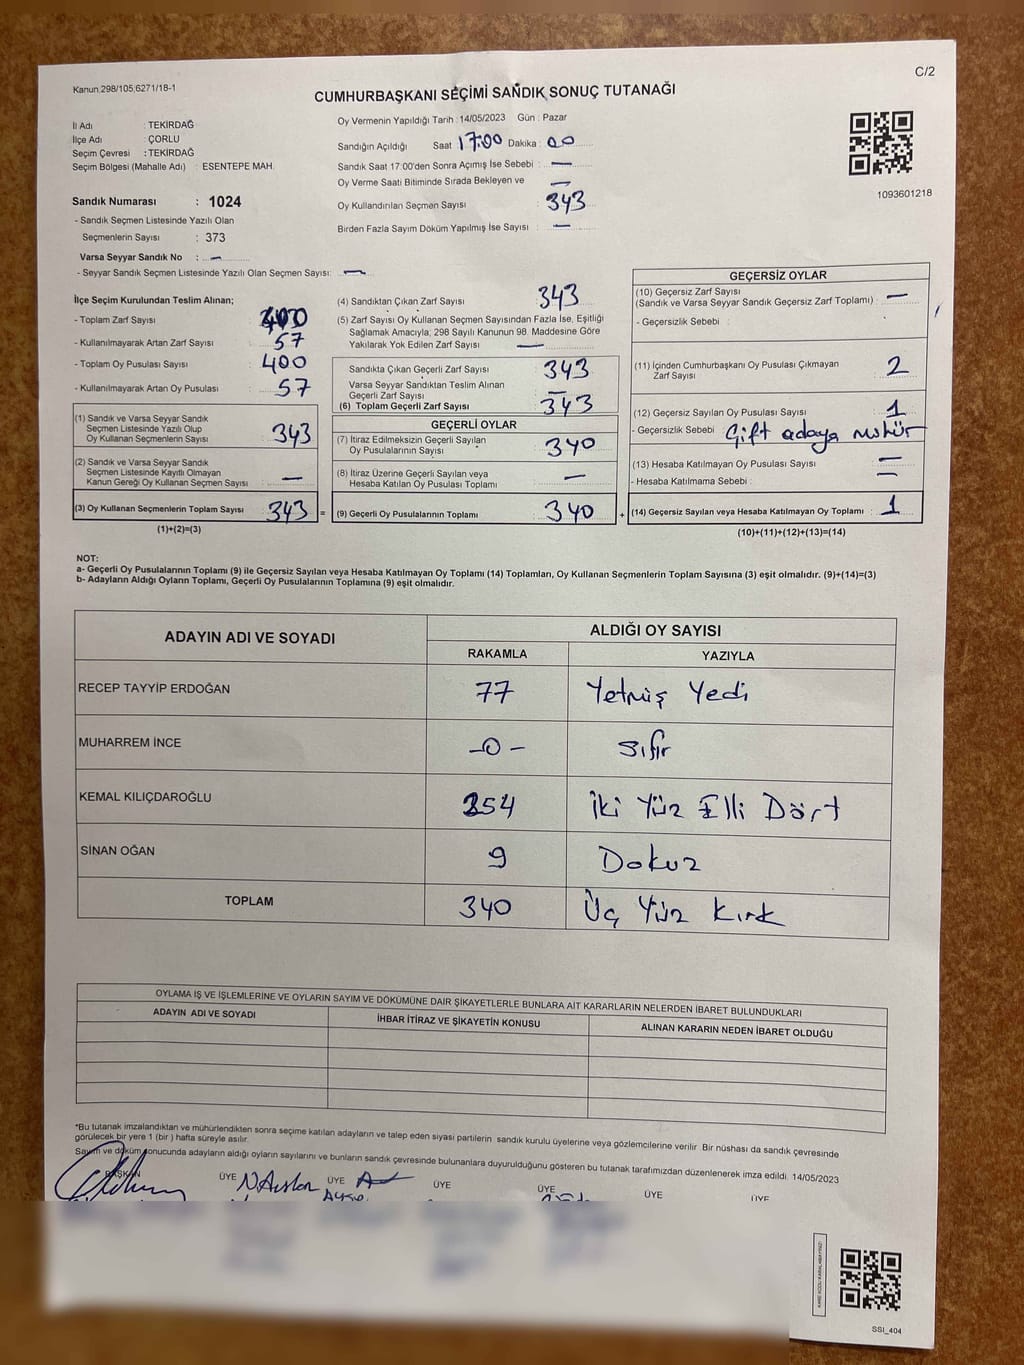 C/2
Kanun 298/105,6271/18-1
CUMHURBAŞKANI SEÇİMİ SANDIK SONUÇ TUTANAĞI
İl Adı : TEKİRDAĞ
İlçe Adı : ÇORLU
Seçim Çevresi : TEKİRDAĞ
Seçim Bölgesi (Mahalle Adı) : ESENTEPE MAH.
Oy Vermenin Yapıldığı Tarih : 14/05/2023 Gün : Pazar
Sandığın Açıldığı Saat 17:00 Dakika : 00
Sandık Saat 17:00'den Sonra Açımış İse Sebebi : —
Oy Verme Saati Bitiminde Sırada Bekleyen ve
Oy Kullandırılan Seçmen Sayısı : 343
Birden Fazla Sayım Döküm Yapılmış İse Sayısı : —
1093601218
Sandık Numarası : 1024
- Sandık Seçmen Listesinde Yazılı Olan
Seçmenlerin Sayısı : 373
Varsa Seyyar Sandık No : —
- Seyyar Sandık Seçmen Listesinde Yazılı Olan Seçmen Sayısı: —
İlçe Seçim Kurulundan Teslim Alınan;
- Toplam Zarf Sayısı : 400
- Kullanılmayarak Artan Zarf Sayısı : 57
- Toplam Oy Pusulası Sayısı : 400
- Kullanılmayarak Artan Oy Pusulası : 57
(1) Sandık ve Varsa Seyyar Sandık
Seçmen Listesinde Yazılı Olup
Oy Kullanan Seçmenlerin Sayısı : 343
(2) Sandık ve Varsa Seyyar Sandık
Seçmen Listesinde Kayıtlı Olmayan
Kanun Gereği Oy Kullanan Seçmen Sayısı : —
(3) Oy Kullanan Seçmenlerin Toplam Sayısı : 343 =
(1)+(2)=(3)
(4) Sandıktan Çıkan Zarf Sayısı : 343
(5) Zarf Sayısı Oy Kullanan Seçmen Sayısından Fazla İse, Eşitliği
Sağlamak Amacıyla, 298 Sayılı Kanunun 98. Maddesine Göre
Yakılarak Yok Edilen Zarf Sayısı : —
Sandıkta Çıkan Geçerli Zarf Sayısı : 343
Varsa Seyyar Sandıktan Teslim Alınan
Geçerli Zarf Sayısı : —
(6) Toplam Geçerli Zarf Sayısı : 343
GEÇERLİ OYLAR
(7) İtiraz Edilmeksizin Geçerli Sayılan
Oy Pusulalarının Sayısı : 340
(8) İtiraz Üzerine Geçerli Sayılan veya
Hesaba Katılan Oy Pusulası Toplamı : —
(9) Geçerli Oy Pusulalarının Toplamı : 340 +
GEÇERSİZ OYLAR
(10) Geçersiz Zarf Sayısı
(Sandık ve Varsa Seyyar Sandık Geçersiz Zarf Toplamı) : —
- Geçersizlik Sebebi :
(11) İçinden Cumhurbaşkanı Oy Pusulası Çıkmayan
Zarf Sayısı : 2
(12) Geçersiz Sayılan Oy Pusulası Sayısı : 1
- Geçersizlik Sebebi : Çift adaya mühür
(13) Hesaba Katılmayan Oy Pusulası Sayısı : —
- Hesaba Katılmama Sebebi : —
(14) Geçersiz Sayılan veya Hesaba Katılmayan Oy Toplamı : 1
(10)+(11)+(12)+(13)=(14)
NOT:
a- Geçerli Oy Pusulalarının Toplamı (9) ile Geçersiz Sayılan veya Hesaba Katılmayan Oy Toplamı (14) Toplamları, Oy Kullanan Seçmenlerin Toplam Sayısına (3) eşit olmalıdır. (9)+(14)=(3)
b- Adayların Aldığı Oyların Toplamı, Geçerli Oy Pusulalarının Toplamına (9) eşit olmalıdır.
ADAYIN ADI VE SOYADI ALDIĞI OY SAYISI
RAKAMLA YAZIYLA
RECEP TAYYİP ERDOĞAN 77 Yetmiş Yedi
MUHARREM İNCE -0- Sıfır
KEMAL KILIÇDAROĞLU 254 İki Yüz Elli Dört
SİNAN OĞAN 9 Dokuz
TOPLAM 340 Üç Yüz Kırk
OYLAMA İŞ VE İŞLEMLERİNE VE OYLARIN SAYIM VE DÖKÜMÜNE DAİR ŞİKAYETLERLE BUNLARA AİT KARARLARIN NELERDEN İBARET BULUNDUKLARI
ADAYIN ADI VE SOYADI İHBAR İTİRAZ VE ŞİKAYETİN KONUSU ALINAN KARARIN NEDEN İBARET OLDUĞU
*Bu tutanak imzalandıktan ve mühürlendikten sonra seçime katılan adayların ve talep eden siyasi partilerin sandık kurulu üyelerine veya gözlemcilerine verilir. Bir nüshası da sandık çevresinde
görülecek bir yere 1 (bir ) hafta süreyle asılır.
Sayım ve döküm sonucunda adayların aldığı oyların sayılarını ve bunların sandık çevresinde bulunanlara duyurulduğunu gösteren bu tutanak tarafımızdan düzenlenerek imza edildi. 14/05/2023
BAŞKAN ÜYE N.Arslan ÜYE ÜYE ÜYE ÜYE ÜYE
SSI_404